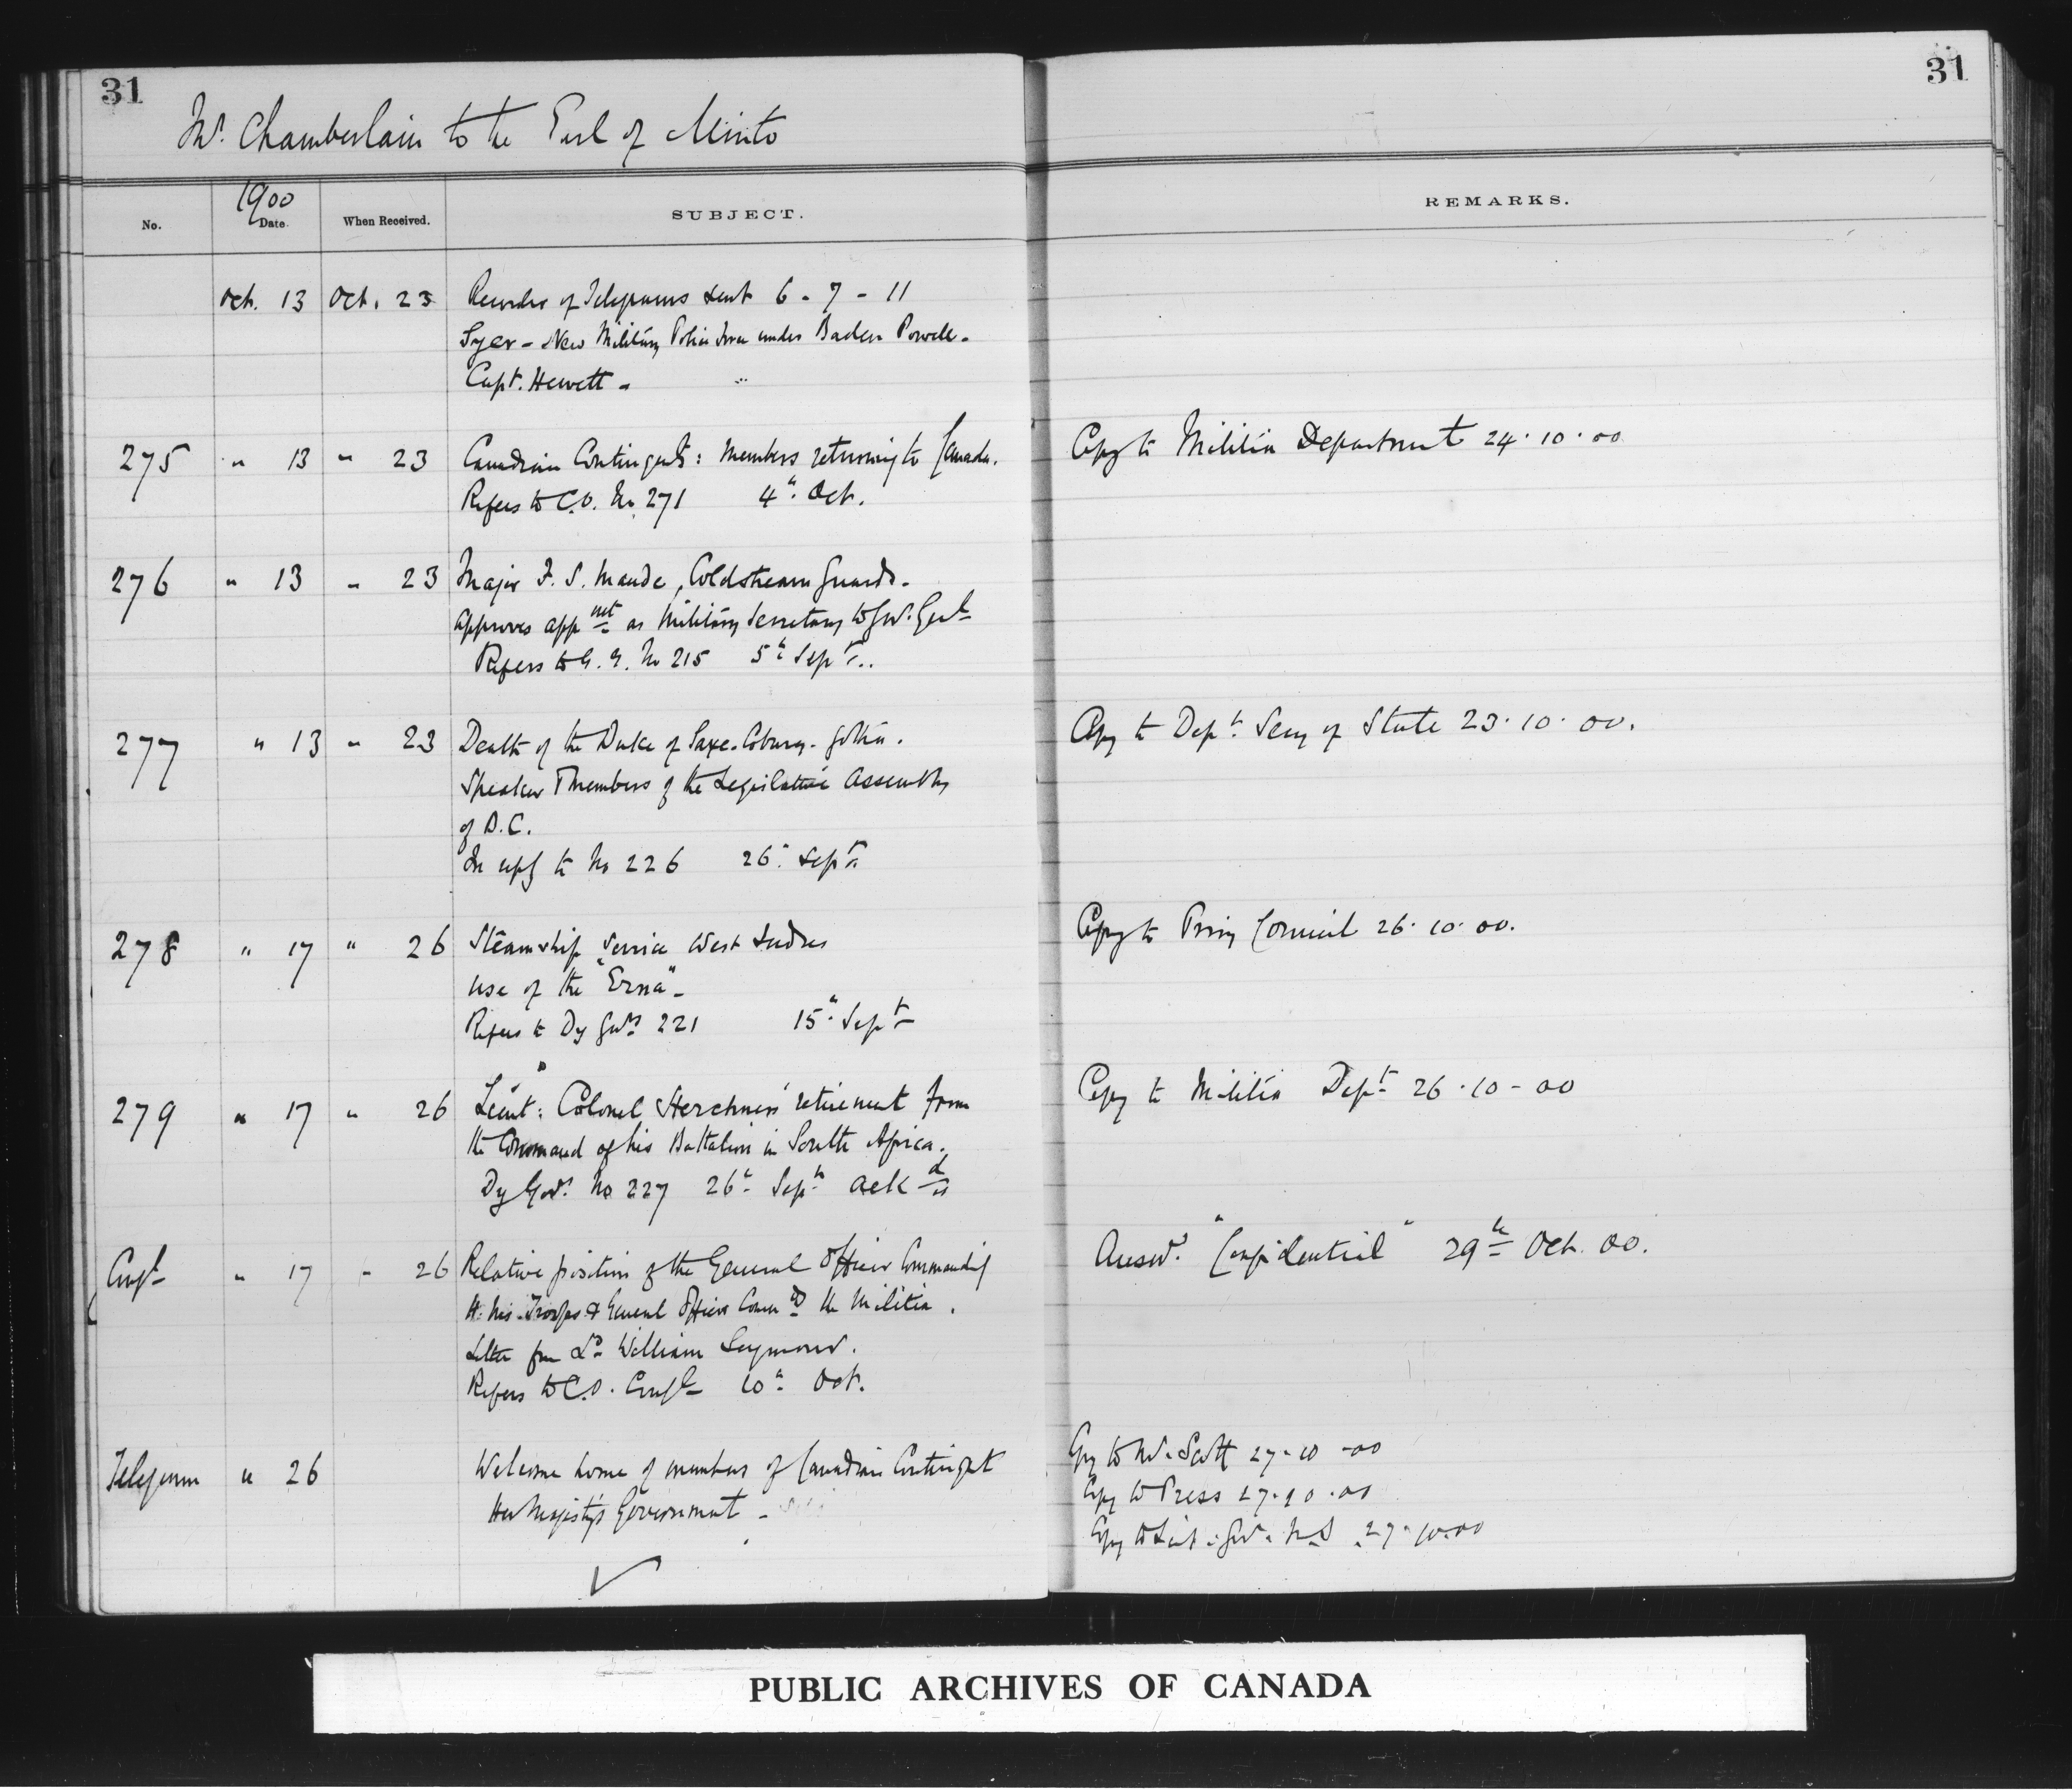 31
31
Mr. Chamberlain to the Earl of Minto
1900
No. Date. When Received. SUBJECT. REMARKS.
Oct. 13 Oct. 23 Recorder of Telegrams sent 6 - 7 - 11
Syer - New Military Police Force under Baden Powell -
Capt. Hewett - "
275 " 13 " 23 Canadian Contingents: Members returning to Canada. Copy to Militia Department 24.10.00
Refers to C.O. No. 271 4th Oct.
276 " 13 " 23 Major F. S. Maude, Coldstream Guards -
Approves appmt as Military Secretary to Gov. Genl
Refers to G.G. No 215 5th Sept..
277 " 13 " 23 Death of the Duke of Saxe-Coburg-Gotha. Copy to Dept. Secy of State 23.10.00.
Speaker & Members of the Legislative Assembly
of B.C.
In reply to No 226 26th Sept.
278 " 17 " 26 Steamship Service West Indies Copy to Privy Council 26.10.00.
use of the "Erna" -
Refers to Dy Govrs 221 15th Sept
279 " 17 " 26 Lieut: Colonel Herchmers' retirement from Copy to Militia Dept 26-10-00
the Command of his Battalion in South Africa.
Dy Govr. No 227 26th Sept. ackd
Confl " 17 " 26 Relative position of the General Officer Commanding Answd. "Confidential" 29th Oct. 00.
H. M's Troops & General Officer Comdg the Militia.
Letter from Ld William Seymour.
Refers to C.O. Confl 10th Oct.
Telegram " 26 Welcome home of members of Canadian Contingent Copy to Mr. Scott 27-10-00
Her Majesty's Government - Copy to Press 27.10.00
Copy to Lieut. Gov. N.S. 27.10.00
PUBLIC ARCHIVES OF CANADA